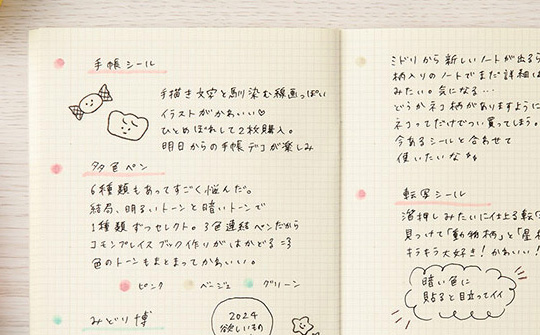 手帳シール
手描き文字と馴染む線画っぽい
イラストがかわいい♡
ひとめぼれして2枚購入。
明日からの手帳デコが楽しみ
多色ペン
6種類もあってすごく悩んだ。
結局、明るいトーンと暗いトーンで
1種類ずつセレクト。3色連結ペンだから
コモンプレイスブック作りがはかどる=3
色のトーンもまとまってかわいい。
ピンク ベージュ グリーン
みどり博
2024
欲しいもの
ミドリから新しいノートが出るら
柄入りのノートでまだ詳細は
みたい。気になる…
どうかネコ柄がありますように
ネコってだけでつい買ってしまう。
今あるシールと合わせて
使いたいな
転写シール
箔押しみたいに仕上る転
見つけて「動物柄」と「星
キラキラ大好き!かわいい!
暗い色に
貼ると目立ってイイ